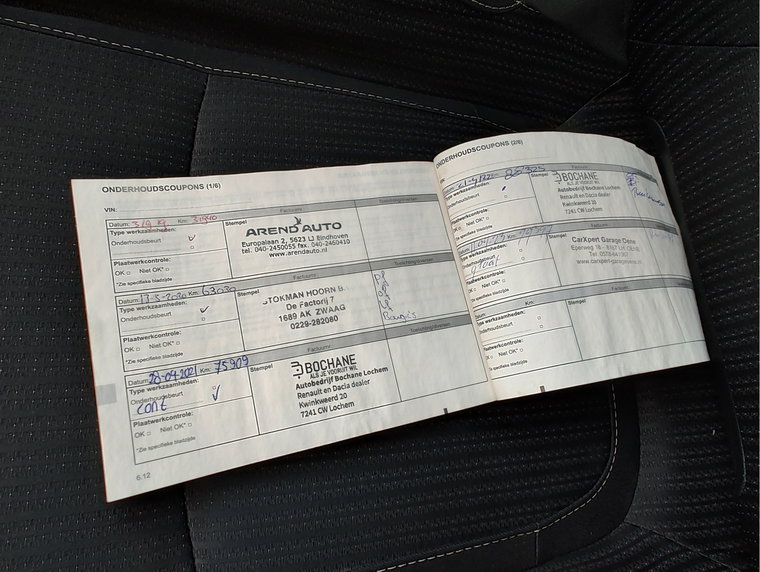 ONDERHOUDSCOUPONS (1/6)
VIN:
Datum: Km: 31940
Factuurnr
Toelichting/overten
Type werkzaamheden:
Stempel
Onderhoudsbeurt
AREND AUTO
Europalaan 2, 5623 LJ Eindhoven
tel. 040-2450055 fax. 040-2450410
www.arendauto.nl
Plaatwerkcontrole:
OK Niet OK*
*Zie specifieke bladzijde
Datum: 13-5-2020 Km: 63030
Factuurnr
Type werkzaamheden:
Stempel
Onderhoudsbeurt
STOKMAN HOORN B.
De Factorij 7
1689 AK ZWAAG
0229-282080
Bougies
Plaatwerkcontrole:
OK Niet OK*
*Zie specifieke bladzijde
Datum: 28-04-2021 Km: 75909
Factuurnr
Type werkzaamheden:
Stempel
Onderhoudsbeurt
cont
BOCHANE
ALS JE VOORUIT WIL
Autobedrijf Bochane Lochem
Renault en Dacia dealer
Kwinkweerd 20
7241 CW Lochem
Plaatwerkcontrole:
OK Niet OK*
*Zie specifieke bladzijde
6.12
ONDERHOUDSCOUPONS (2/6)
VIN:
Stempel
Factuurnr
Type werkzaamheden:
Onderhoudsbeurt
BOCHANE
ALS JE VOORUIT WIL
Autobedrijf Bochane Lochem
Renault en Dacia dealer
Kwinkweerd 20
7241 CW Lochem
Plaatwerkcontrole:
OK Niet OK*
*Zie specifieke bladzijde
Km
Stempel
Factuurnr
Type werkzaamheden:
Onderhoudsbeurt
groot
CarXpert Garage Oene
Eperweg 18 - 8167 LH OENE
www.carxpert-garageoene.nl
Plaatwerkcontrole:
OK Niet OK*
*Zie specifieke bladzijde
Km:
Factuurnr
Type werkzaamheden:
Stempel
Onderhoudsbeurt
Plaatwerkcontrole:
Niet OK*
*Zie specifieke bladzijde